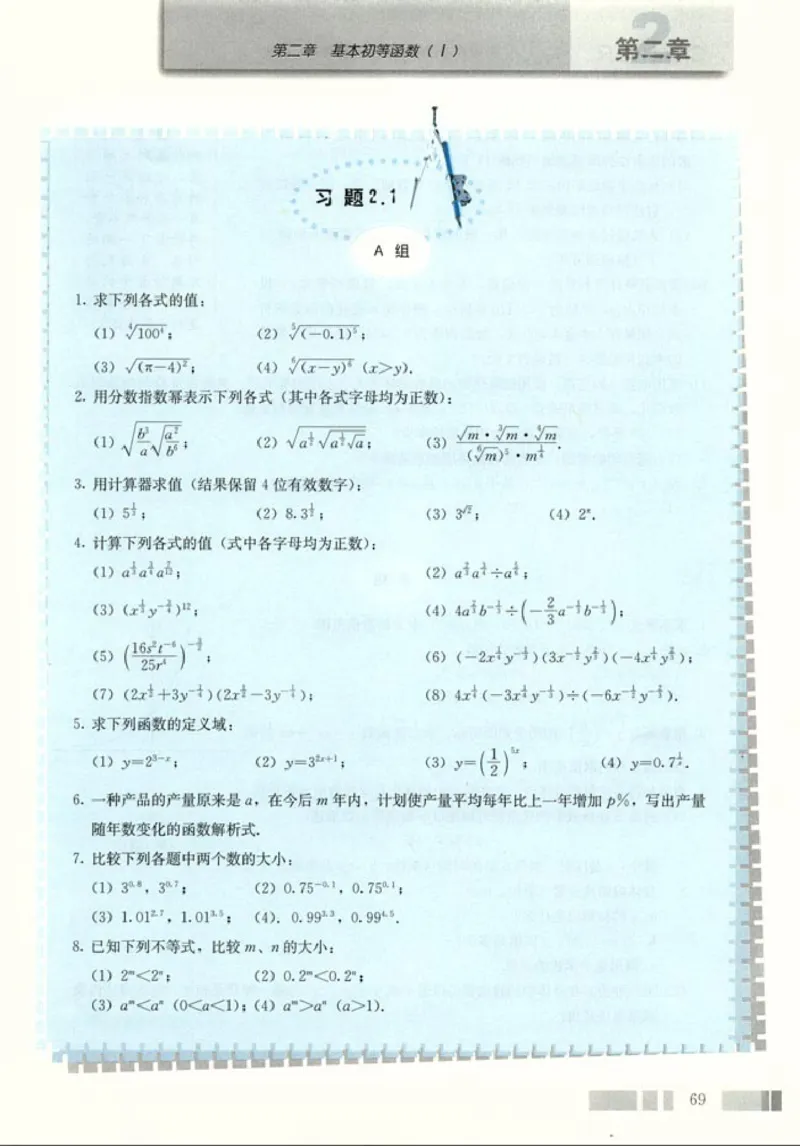 第二章 基本初等函数(Ⅰ)
第二章
习题2.1
A 组
1. 求下列各式的值:
(1) $\sqrt[4]{100^4}$; (2) $\sqrt[5]{(-0.1)^5}$;
(3) $\sqrt{(\pi-4)^2}$; (4) $\sqrt[6]{(x-y)^6}$ (x>y).
2. 用分数指数幂表示下列各式(其中各式字母均为正数):
(1) $\sqrt{\frac{b^3}{a}\sqrt{\frac{a^2}{b^6}}}$; (2) $\sqrt{a^{\frac{1}{2}}\sqrt{a^{\frac{1}{2}}\sqrt{a}}}$; (3) $\frac{\sqrt{m}\cdot\sqrt[3]{m}\cdot\sqrt[4]{m}}{(\sqrt[6]{m})^5\cdot m^{\frac{1}{4}}}$.
3. 用计算器求值(结果保留4位有效数字):
(1) $5^{\frac{1}{2}}$; (2) $8.3^{\frac{1}{2}}$; (3) $3^{\sqrt{2}}$; (4) $2^{\pi}$.
4. 计算下列各式的值(式中各字母均为正数):
(1) $a^{\frac{1}{3}}a^{\frac{3}{4}}a^{\frac{7}{12}}$; (2) $a^{\frac{2}{3}}a^{\frac{3}{4}}\div a^{\frac{5}{6}}$;
(3) $(x^{\frac{1}{3}}y^{-\frac{3}{4}})^{12}$; (4) $4a^{\frac{2}{3}}b^{-\frac{1}{3}}\div\left(-\frac{2}{3}a^{-\frac{1}{3}}b^{-\frac{1}{3}}\right)$;
(5) $\left(\frac{16s^2t^{-6}}{25r^4}\right)^{-\frac{3}{2}}$; (6) $(-2x^{\frac{1}{4}}y^{-\frac{1}{3}})(3x^{-\frac{1}{2}}y^{\frac{2}{3}})(-4x^{\frac{1}{4}}y^{\frac{2}{3}})$;
(7) $(2x^{\frac{1}{2}}+3y^{-\frac{1}{4}})(2x^{\frac{1}{2}}-3y^{-\frac{1}{4}})$; (8) $4x^{\frac{1}{4}}(-3x^{\frac{1}{4}}y^{-\frac{1}{3}})\div(-6x^{-\frac{1}{2}}y^{-\frac{2}{3}})$.
5. 求下列函数的定义域:
(1) $y=2^{3-x}$; (2) $y=3^{2x+1}$; (3) $y=\left(\frac{1}{2}\right)^{5x}$; (4) $y=0.7^{\frac{1}{x}}$.
6. 一种产品的产量原来是a,在今后m年内,计划使产量平均每年比上一年增加p%,写出产量
随年数变化的函数解析式.
7. 比较下列各题中两个数的大小:
(1) $3^{0.8}$,$3^{0.7}$; (2) $0.75^{-0.1}$,$0.75^{0.1}$;
(3) $1.01^{2.7}$,$1.01^{3.5}$; (4). $0.99^{3.3}$,$0.99^{4.5}$.
8. 已知下列不等式,比较m、n的大小:
(1) $2^m<2^n$; (2) $0.2^m<0.2^n$;
(3) $a^m<a^n$ (0<a<1); (4) $a^m>a^n$ (a>1).
69